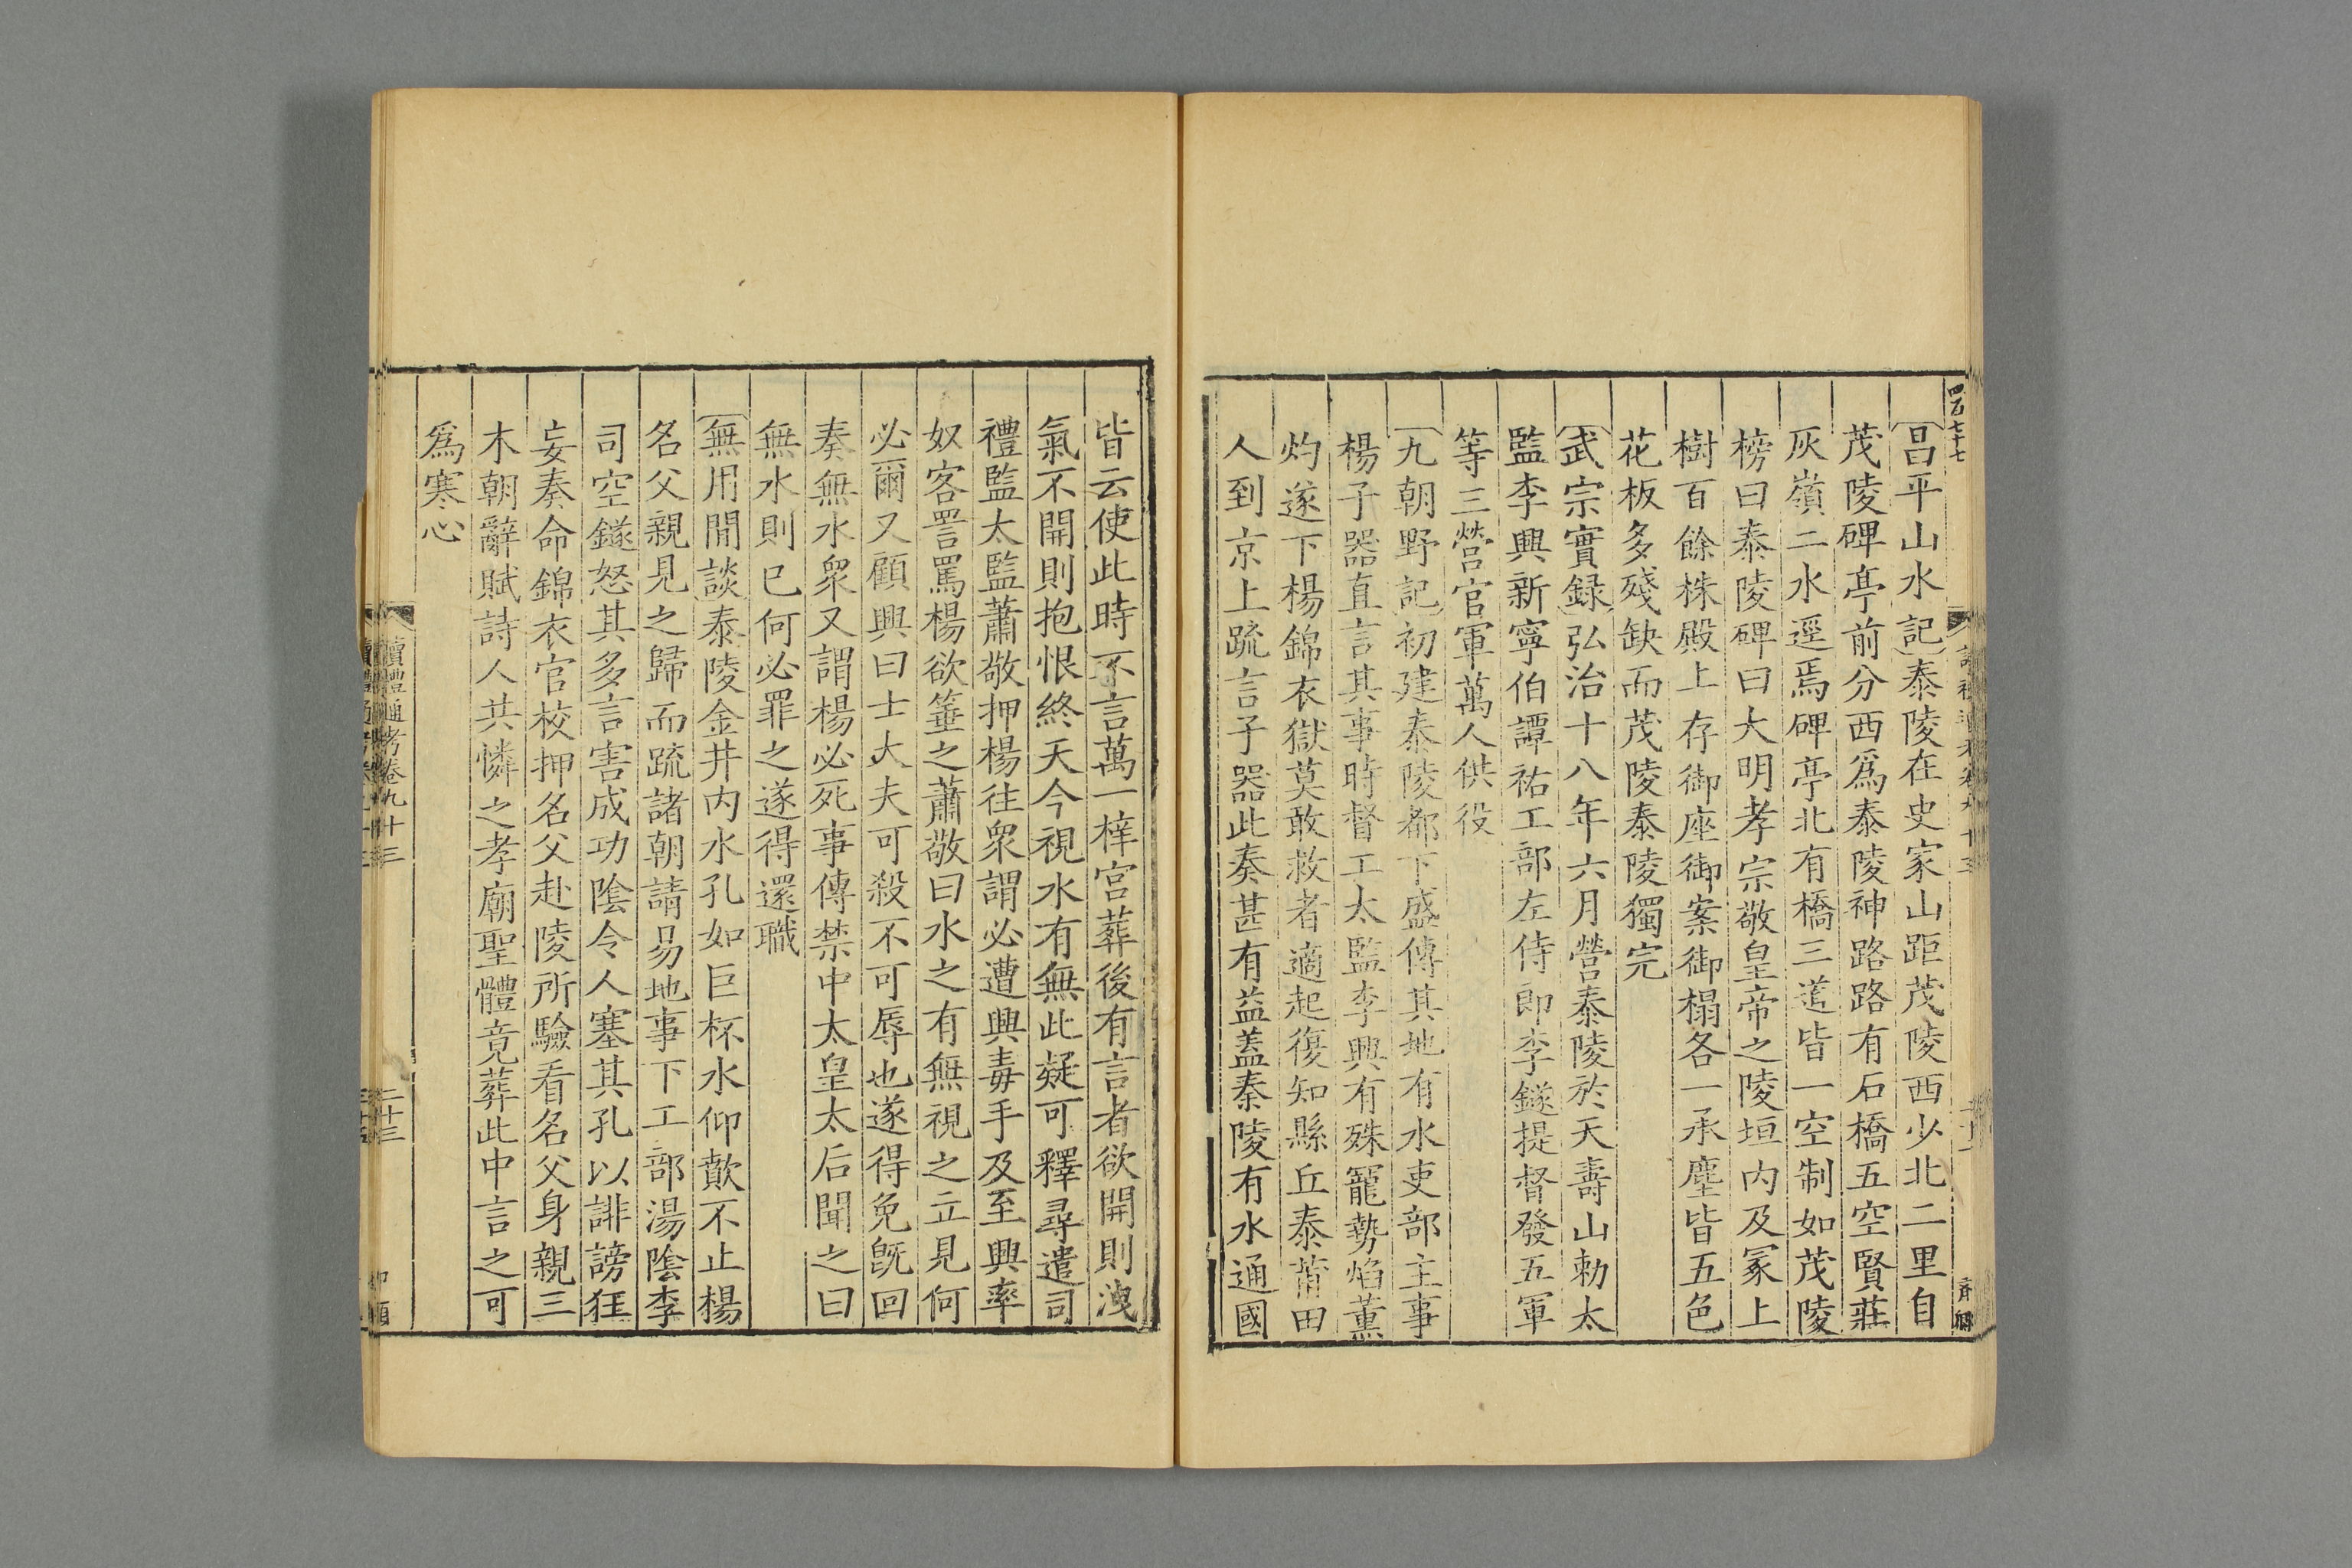 四百七十七
昌平山水記泰陵在史家山距茂陵西少北二里自
茂陵碑亭前分西爲泰陵神路路有石橋五空賢莊
灰嶺二水逕焉碑亭北有橋三道皆一空制如茂陵
榜曰泰陵碑曰大明孝宗敬皇帝之陵垣内及冢上
樹百餘株殿上存御座御案御榻各一承塵皆五色
花板多殘缺而茂陵泰陵獨完
武宗實録弘治十八年六月營泰陵於天壽山勅太
監李興新寧伯譚祐工部左侍郎李鐩提督發五軍
等三營官軍萬人供役
九朝野記初建泰陵都下盛傳其地有水吏部主事
楊子器直言其事時督工太監李興有殊寵勢焰薰
灼遂下楊錦衣獄莫敢救者適起復知縣丘泰莆田
人到京上疏言子器此奏甚有益蓋泰陵有水通國
皆云使此時不言萬一梓宮葬後有言者欲開則洩
氣不開則抱恨終天今視水有無此疑可釋尋遣司
禮監太監蕭敬押楊往衆謂必遭興毒手及至興率
奴客詈罵楊欲箠之蕭敬曰水之有無視之立見何
必爾又顧興曰士大夫可殺不可辱也遂得免旣回
奏無水衆又謂楊必死事傳禁中太皇太后聞之曰
無水則已何必罪之遂得還職
無用閒談泰陵金井内水孔如巨杯水仰歕不止楊
名父親見之歸而疏諸朝請易地事下工部湯陰李
司空鐩怒其多言害成功陰令人塞其孔以誹謗狂
妄奏命錦衣官校押名父赴陵所驗看名父身親三
木朝辭賦詩人共憐之孝廟聖體竟葬此中言之可
爲寒心
讀禮通考卷九十三
二十三